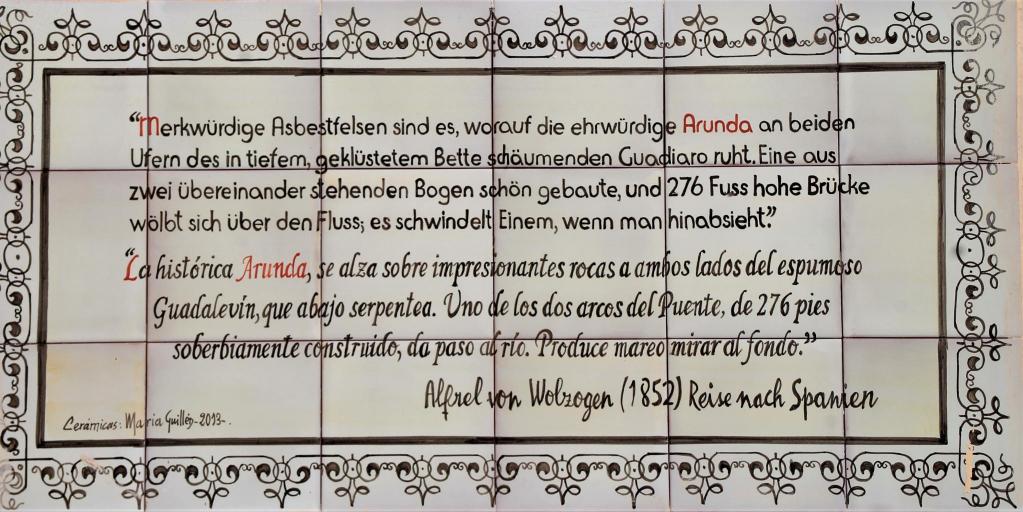 “Merkwürdige Asbestfelsen sind es, worauf die ehrwürdige Arunda an beiden
Ufern des in tiefem, geklüstetem Bette schäumenden Guadiaro ruht. Eine aus
zwei übereinander stehenden Bogen schön gebaute, und 276 Fuss hohe Brücke
wölbt sich über den Fluss; es schwindelt Einem, wenn man hinabsieht.”
“La histórica Arunda, se alza sobre impresionantes rocas a ambos lados del espumoso
Guadalevín, que abajo serpentea. Uno de los dos arcos del Puente, de 276 pies
soberbiamente construido, da paso al río. Produce mareo mirar al fondo.”
Alfrel von Wolzogen (1852) Reise nach Spanien
Cerámicas: Maria Guillén-2013-.